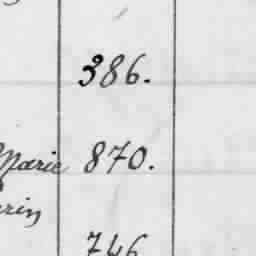 386.
Marie 870.
rin
746